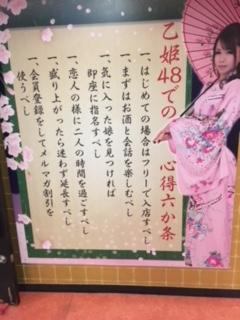 乙姫48での心得六か条
一、はじめての場合はフリーで入店すべし
一、まずはお酒と会話を楽しむべし
一、気に入った娘を見つければ
即座に指名すべし
一、恋人の様に二人の時間を過ごすべし
一、盛り上がったら迷わず延長すべし
一、会員登録をしてメルマガ割引を
使うべし